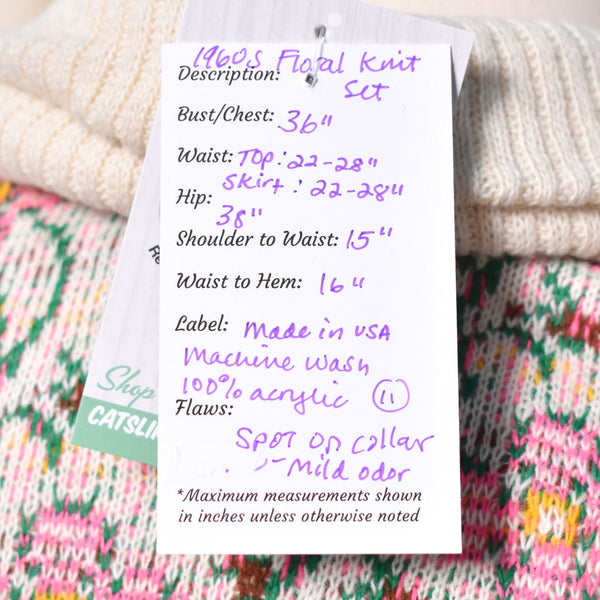 1960s Floral Knit
Description:
Set
Bust/Chest: 36"
Waist: Top: 22-28"
Skirt: 22-28"
Hip:
38"
Shoulder to Waist: 15"
Waist to Hem: 16"
Label: Made in USA
Machine wash
100% acrylic 11
Flaws:
Spot on collar
- Mild odor
*Maximum measurements shown
in inches unless otherwise noted
Shop